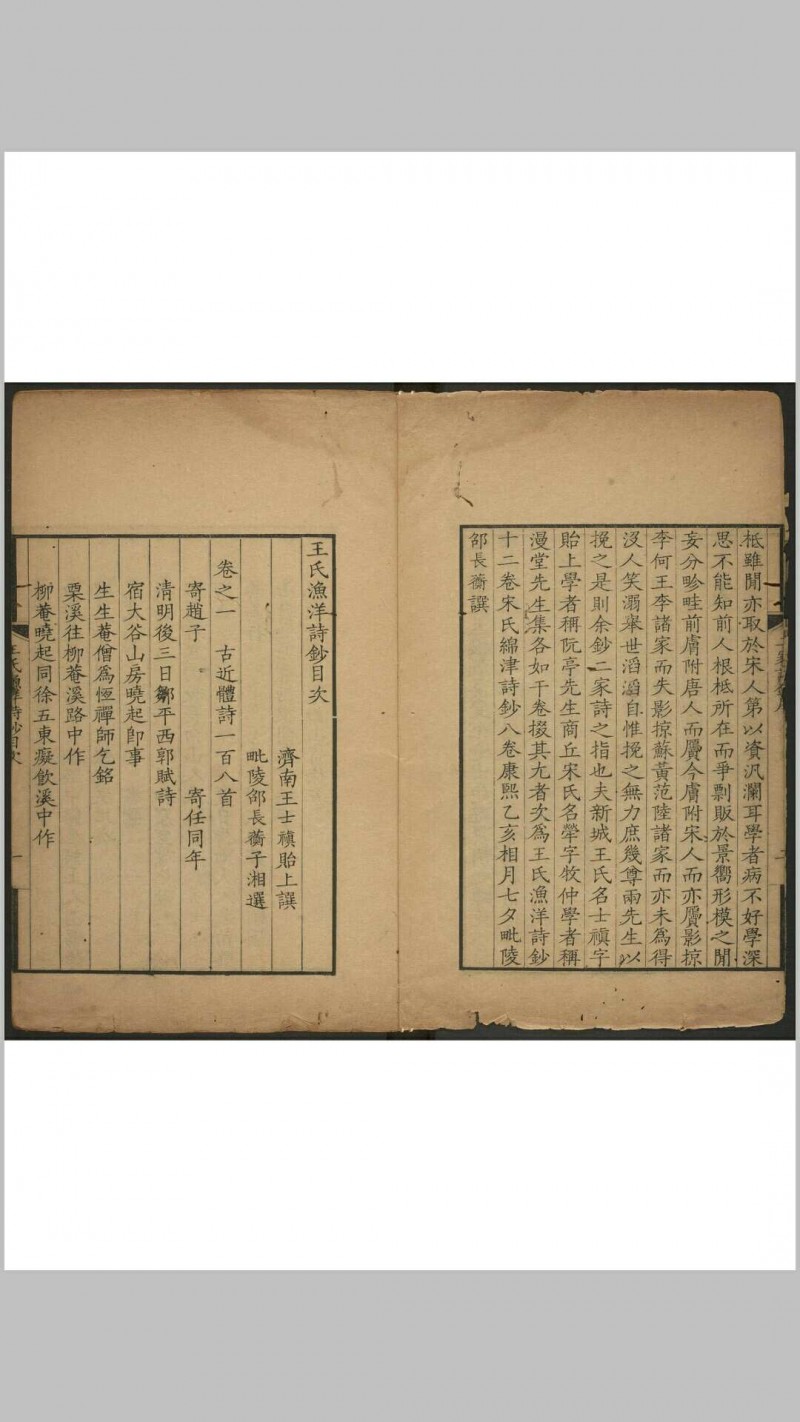 柢雖閒亦取於宋人第以資汎瀾耳學者病不好學深
思不能知前人根柢所在而爭剽販於景嚮形模之閒
妄分畛畦前膚附唐人而贗今膚附宋人而亦贗影掠
李何王李諸家而失影掠蘇黃范陸諸家而亦未為得
沒人笑溺舉世滔滔自惟挽之無力庶幾尊兩先生以
挽之是則余鈔二家詩之指也夫新城王氏名士禛字
貽上學者稱阮亭先生商丘宋氏名犖字牧仲學者稱
漫堂先生集各如干卷掇其尤者次為王氏漁洋詩鈔
十二卷宋氏綿津詩鈔八卷康熙乙亥相月七夕毗陵
邵長蘅譔
王氏漁洋詩鈔目次
濟南王士禛貽上譔
毗陵邵長蘅子湘選
卷之一 古近體詩一百八首
寄趙子 寄任同年
清明後三日鄒平西郭賦詩
宿大谷山房曉起卽事
生生菴僧為恒禪師乞銘
栗溪往柳菴溪路中作
柳菴曉起同徐五東癡飲溪中作
王氏漁洋詩鈔目次 一